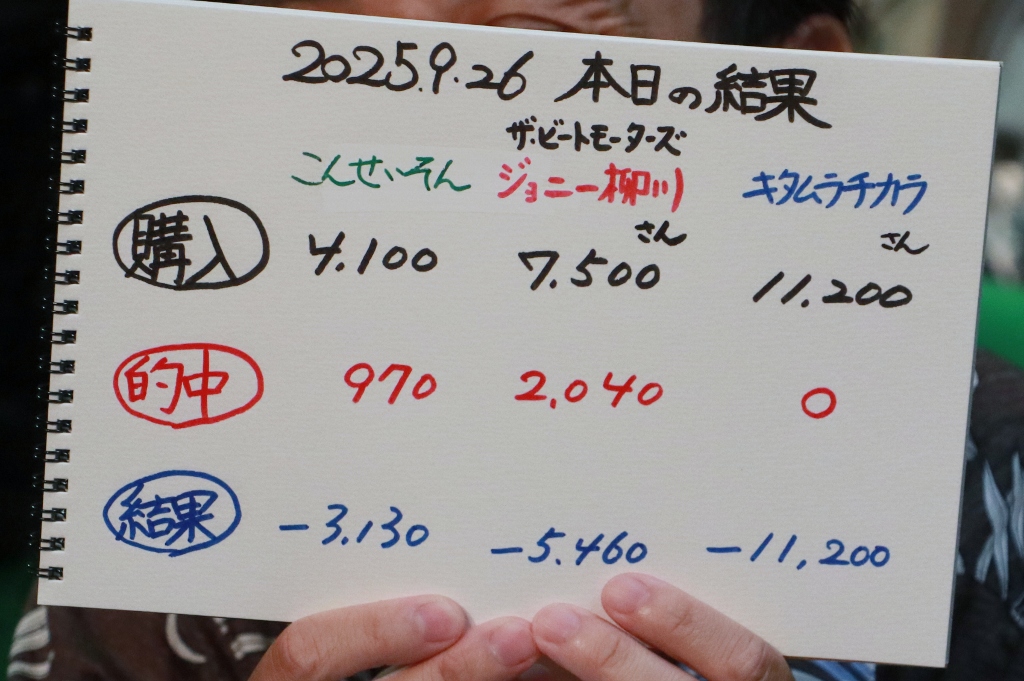 2025.9.26 本日の結果
こんせいそん ザ・ビートモーターズ ジョニー柳川さん キタムラチカラさん
購入 4.100 7.500 11.200
的中 970 2,040 0
結果 -3,130 -5.460 -11,200